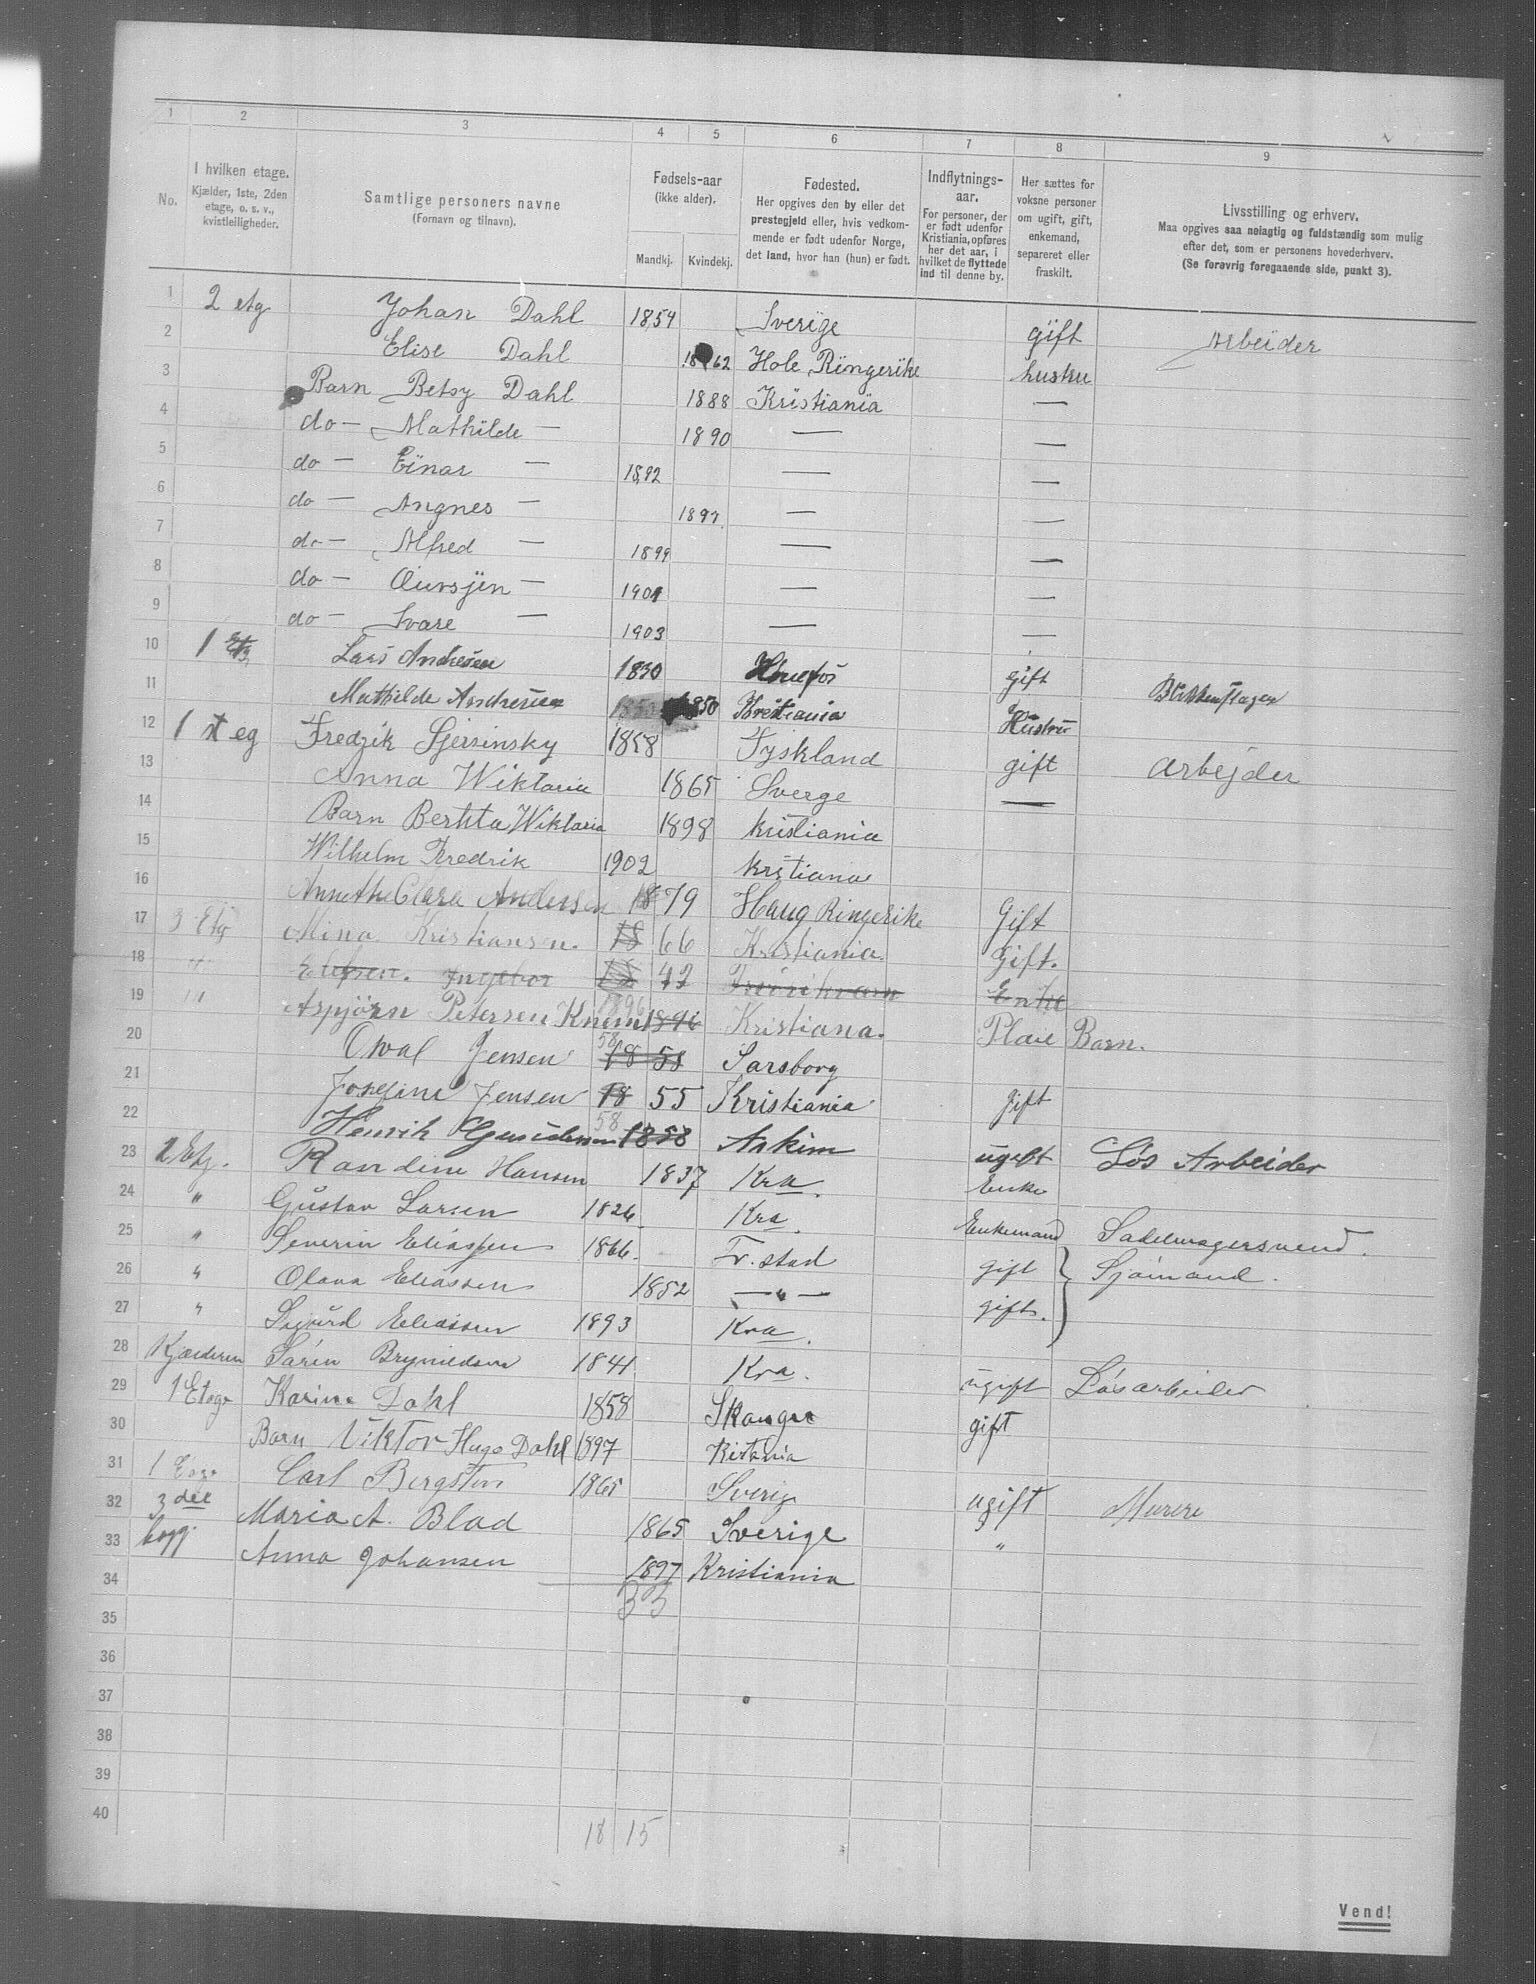 1 2 3 4 5 6 7 8 9
No.
I hvilken etage.
Kjælder, 1ste, 2den
etage, o. s. v.,
kvistleiligheder.
Samtlige personers navne
(Fornavn og tilnavn).
Fødsels-aar
(ikke alder).
Mandkj. Kvindekj.
Fødested.
Her opgives den by eller det
prestegjeld eller, hvis vedkom-
mende er født udenfor Norge,
det land, hvor han (hun) er født.
Indflytnings-
aar.
For personer, der
er født udenfor
Kristiania, opføres
her det aar, i
hvilket de flyttede
ind til denne by.
Her sættes for
voksne personer
om ugift, gift,
enkemand,
separeret eller
fraskilt.
Livsstilling og erhverv.
Maa opgives saa nøiagtig og fuldstændig som mulig
efter det, som er personens hovederhverv.
(Se forøvrig foregaaende side, punkt 3).
1 2 etg Johan Dahl 1854 Sverige gift Arbeider
2 Elise Dahl 1862 Hole Ringerike hustru
3 Barn Betsy Dahl 1888 Kristiania —
4 do — Mathilde — 1890 — —
5 do — Einar — 1892 — —
6 do — Angnes — 1897 — —
7 do — Alfred — 1899 — —
8 do — — 1901 — —
9 do — Svare — 1903 — —
10 1 Etg. Lars Andresen 1830 Hønefos gift
11 Mathilde Andresen 1850 Kristiania Hustru
12 1 st eg Fredrik 1858 Tyskland gift arbejder
13 Anna Wiktoria 1865 Sverge —
14 Barn Berhta Wiktoria 1898 kristiania
15 Wilhelm Fredrik 1902 kristiana
16 Annethe Clara Andersen 1879 Haug Ringerike Gift
17 3 Etg Mina Kristiansen. 18 66 Kristiania. Gift.
18 " Ingebor 18 42 Enke
19 " Aspjørn Petersen 1896 1896 Kristiana. Pleie Barn.
20 Oval Jensen 58 18 58 Sarsborg
21 Josefine Jensen 18 55 Kristiania gift
22 Henrik 58 1858 Askim ugift Løs Arbeider
23 1 Etg. Randine Hansen 1837 Kra. Enke
24 " Gustav Larsen 1826. Kra. Enkemand Sadelmagersvend.
25 " Severin Eliassen 1866. Fr. stad gift Sjømand.
26 " Olava Eliassen 1852 — " — gift.
27 " Sigurd Eliassen 1893 Kra.
28 Kjælderen Søren Brynildsen 1841 Kra. ugift Løsarbeider
29 1 Etage Karine Dahl 1858 gift
30 Barn Viktor Hugo Dahl 1897 Kristania
31 1 Carl Bergsten 1865 Sverig ugift Murere
32 3 die Maria A. Blad 1865 Sverige "
33 bygg. Anna Johansen 1897 Kristiania
34 33
35
36
37
38
39
40
18 15
Vend!